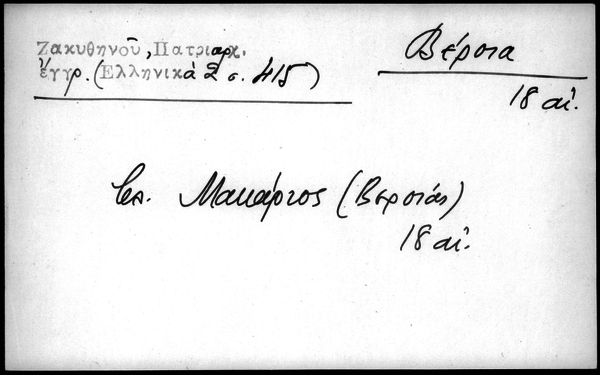 Ζακυθηνοῦ, Πατριαρχ.
ἔγγρ. (Ἑλληνικὰ 2 σ. 415)
Βέροια
18 αἰ.
Ἐπ. Μακάριος (Βεροιάς)
18 αἰ.